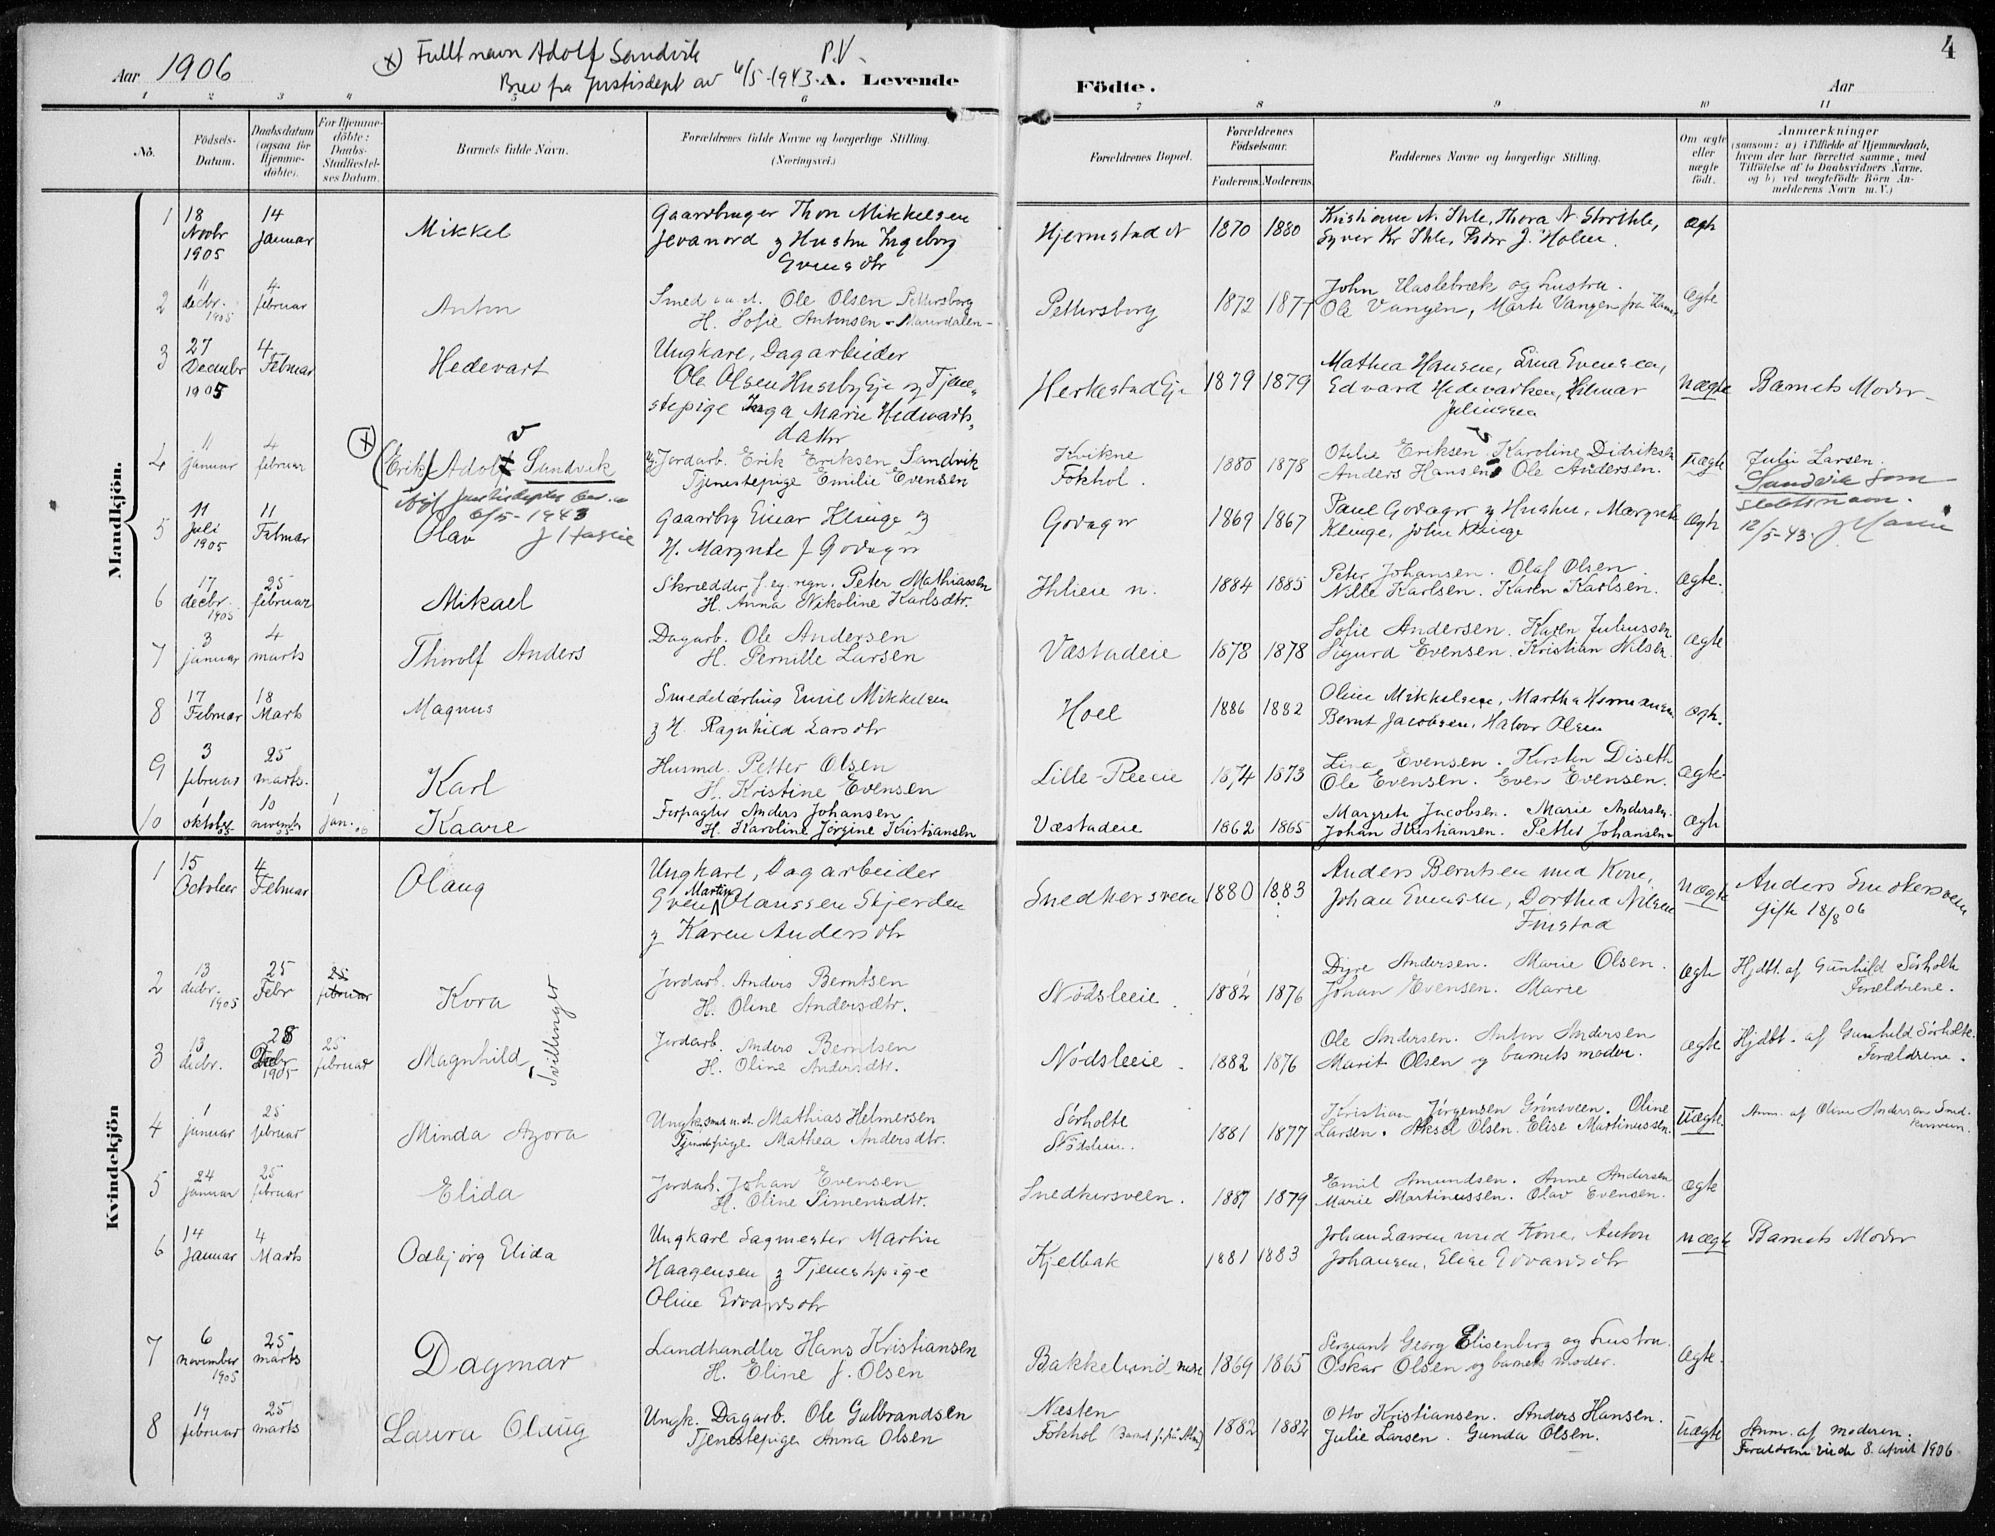 4
Aar 1906
(x) Fullt navn Adolf Sandvik P.V.
Brev fra Justisdept av 6/5-1943.
A. Levende Födte.
Aar
1 2 3 4 5 6 7 8 9 10 11
No.
Födsels-Datum.
Daabsdatum (ogsaa for Hjemme-döbte).
For Hjemme-döbte: Daabs-Stadfæstel-ses Datum.
Barnets fulde Navn.
Forældrenes fulde Navne og borgerlige Stilling.
(Næringsvei.)
Forældrenes Bopæl.
Forældrenes Födselsaar.
Faderens. Moderens.
Faddernes Navne og borgerlige Stilling.
Om ægte eller uægte födt.
Anmærkninger
(saasom: a) i Tilfælde af Hjemmedaab,
hvem der har forrettet samme, med
Tilföielse af to Daabsvidners Navne.
og b) ved uægtefödte Börn An-
melderens Navn m. V.)
Mandkjön.
1 18 Novbr 1905 14 Januar Mikkel Gaardbruger Thon Mikkelsen
Jevanord og Hustru Ingeborg
Evensdtr
Hjermstad N 1870 1880 Kristiane N. Ihle, Thora N Storihle,
Syver Kr Ihle, Peder J. Holen. Ægte
2 11 decbr. 1905 4 februar Anton Smed u. a. Ole Olsen Pettersborg
H. Sofie Antonsen - Maurdalen -
Pettersborg 1872 1877 John Haslebræk og hustru.
Ole Vangen, Marte Vangen fra Hamar Ægte
3 27 Decembr 1905 4 Februar Hedevart Ungkarl, Dagarbeider
Ole Olsen Husebyeje og Tjene-
stepige Inga Marie Hedevarts-
datter
Herkestad Eje 1879 1879 Mathea Hansen, Lina Evensen,
Edvard Hedevartsen, Hilmar
Juliussen Uægte Barnets Moder
4 11 januar 4 februar (x) (Erik) Adolf Sandvik
Uk. Jordarb. Erik Eriksen Sandvik
Tjenestepige Emilie Evensen
Kvikne
Fokhol. 1880 1878 Otilie Eriksen. Karoline Didriksen
Anders Hansen, Ole Andersen. Uægte Julie Larsen.
Sandvik som
slektsnavn.
12/5-43. J Hasvie
6/5-1943
J Hasvie
5 11 Juli 1905 11 Februar Olav Gaardbr Einar Klinge og
H. Margrete J Godager
Godager 1869 1867 Paul Godager og Hustru, Margrete
Klinge, John Klinge Ægte
6 17 decbr. 1905 25 februar Mikael Skrædder f. eg. regn. Peter Mathiassen
H. Anna Nikoline Karlsdtr.
Ihleie n. 1884 1885 Peter Johansen. Olaf Olsen.
Nille Karlsen. Karen Karlsen. Ægte.
7 3 januar 4 marts Thorolf Anders Dagarb. Ole Andersen
H. Pernille Larsen
Væstadeie 1878 1878 Sofie Andersen. Karen Juliussen.
Sigurd Evensen. Kristian Nilsen. Ægte
8 17 Februar 18 Marts Magnus Smedelærling Emil Mikkelsen
og H. Ragnhild Larsdtr
Hoel 1886 1882 Oline Mikkelsen, Martha Hermansen
Bernt Jacobsen, Halvor Olsen Ægte.
9 3 februar 25 marts. Karl Husmd. Petter Olsen
H. Kristine Evensen
Lille-Reeie 1874 1873 Lina Evensen. Kirsten Diseth
Ole Evensen. Even Evensen. Ægte
10 1 oktober 05 10 novembr 05 1 jan. 06 Kaare Forpagter Anders Johansen
H. Karoline Jørgine Kristiansen
Væstadeie 1862 1865 Margrete Jacobsen. Marie Andersen.
Johan Kristiansen. Petter Johansen Ægte
Kvindekjön
1 15 October 4 Februar Olaug Ungkarl, Dagarbeider
Even Martin Olaussen Skjerden
og Karen Andersdtr
Snedkersveen 1880 1883 Anders Berntsen med Kone,
Johan Evensen, Dorthea Nilsen
Finstad Uægte Anders Snedkersveen
Gifte 18/8 06
2 13 decbr. 1905 25 Febr 25 februar Kora Tvillinger Jordarb. Anders Berntsen
H. Oline Andersdtr.
Nødsleeie. 1882 1876 Dyre Andersen. Marie Olsen.
Johan Evensen. Marie Ægte Hjdbt. af Gunhild Sørholte
Forældrene.
3 13 decbr. 28 Decbr 1905 25 februar Magnhild Jordarb. Anders Berntsen
H. Oline Andersdtr.
Nødsleeie. 1882 1876 Ole Andersen. Anton Andersen
Marit Olsen og barnets moder. Ægte Hjdbt. af Gunhild Sørholte.
Forældrene.
4 1 januar 25 februar Minda Azora Ungk. Smed u. st. Mathias Helmersen
Tjenestepige Mathea Andersdtr.
Sørholte
Nødsleie. 1881 1877 Kristian Jørgensen Grønsveen. Oline
Larsen. Aksel Olsen. Elise Martinussen. Uægte. Anm. af Oline Andersen Sned-
kersveen.
5 24 januar 25 februar Elida Jordarb. Johan Evensen
H. Oline Simensdtr.
Snedkersveen. 1887 1879 Emil Amundsen. Anne Andersen
Marie Martinussen. Olav Evensen. Ægte
6 14 Januar 4 Marts Odbjørg Elida Ungkarl Sagmester Martin
Haagensen og Tjenestpige
Oline Edvardsdtr
Kjelbak 1881 1883 Johan Larsen med Kone, Anton
Johansen, Elise Edvardsdtr Uægte Barnets Moder
7 6 november 1905 25 marts Dagmar Landhandler Hans Kristiansen
H. Eline J. Olsen
Bakkelund nedre 1869 1865 Sergeant Georg Elisenberg og hustru.
Oskar Olsen og barnets moder. Ægte.
8 19 februar 25 marts Laura Olaug Ungk. Dagarb. Ole Gulbrandsen
Tjenestepige Anna Olsen
Næsten
Fokhol 1882 1882 Otto Kristiansen. Anders Hansen.
Julie Larsen. Gunda Olsen. Uægte Anm. af moderen.
Forældrene viede 8. april 1906